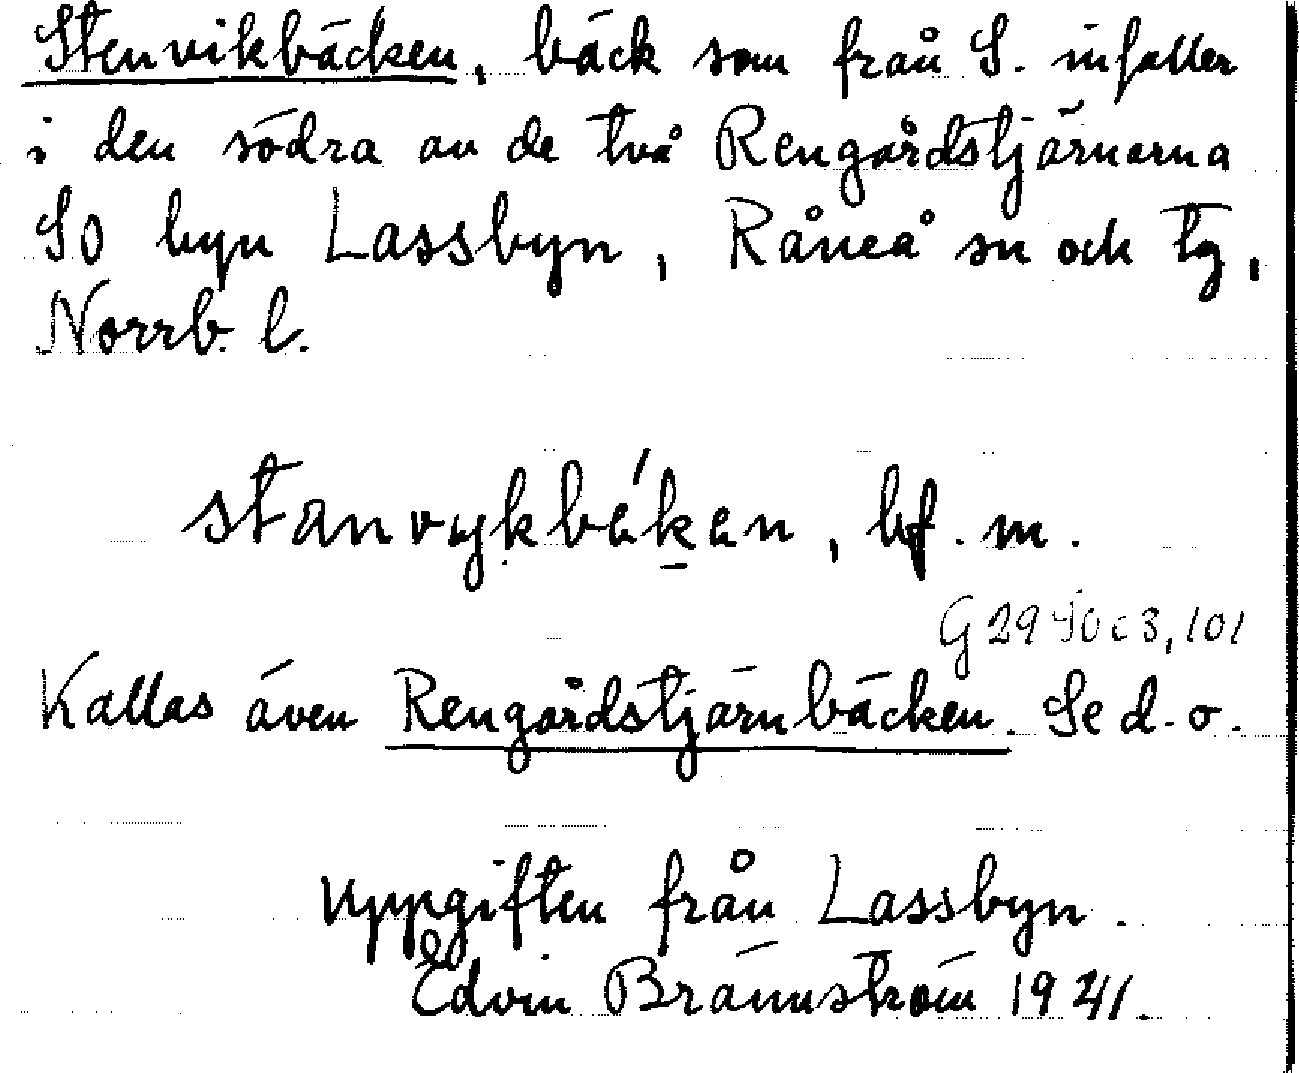 Stenvikbäcken, bäck som från S. infaller
i den södra av de två Rengårdstjärnarna
SO byn Lassbyn, Råneå sn och tg,
Norrb. l.
stanvykbékan, bf. m.
G 29 SO c 3, 101
Kallas även Rengårdstjärnbäcken. Se d. o.
Uppgiften från Lassbyn.
Edvin Brännström 1941.